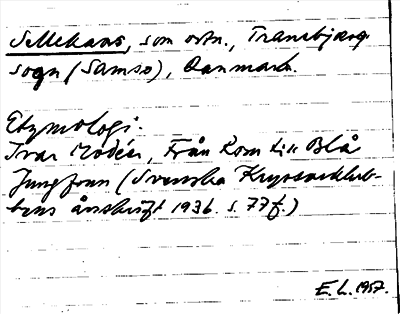 Sillekaas, som ortn., Tranebjærg
sogn (Samsø), Danmark.
Etymologi.
Ivar Modéer, Från Rom till Blå
Jungfrun (Svenska Kryssarklub-
bens årsskrift 1936. s. 77f.)
E. L. 1957.